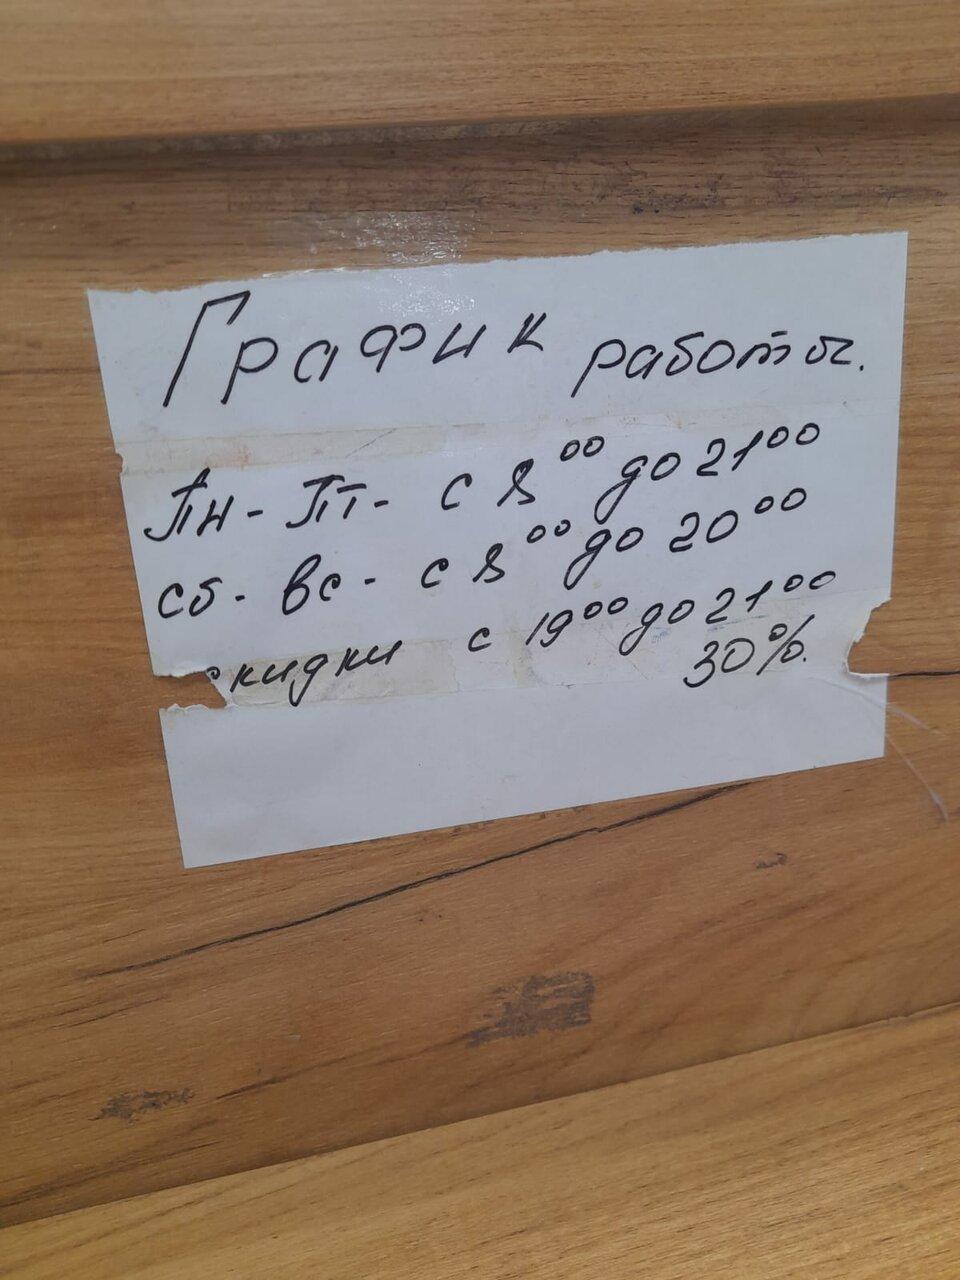 График работы.
Пн - Пт - с 8⁰⁰ до 21⁰⁰
сб - вс - с 8⁰⁰ до 20⁰⁰
скидки с 19⁰⁰ до 21⁰⁰
30%.